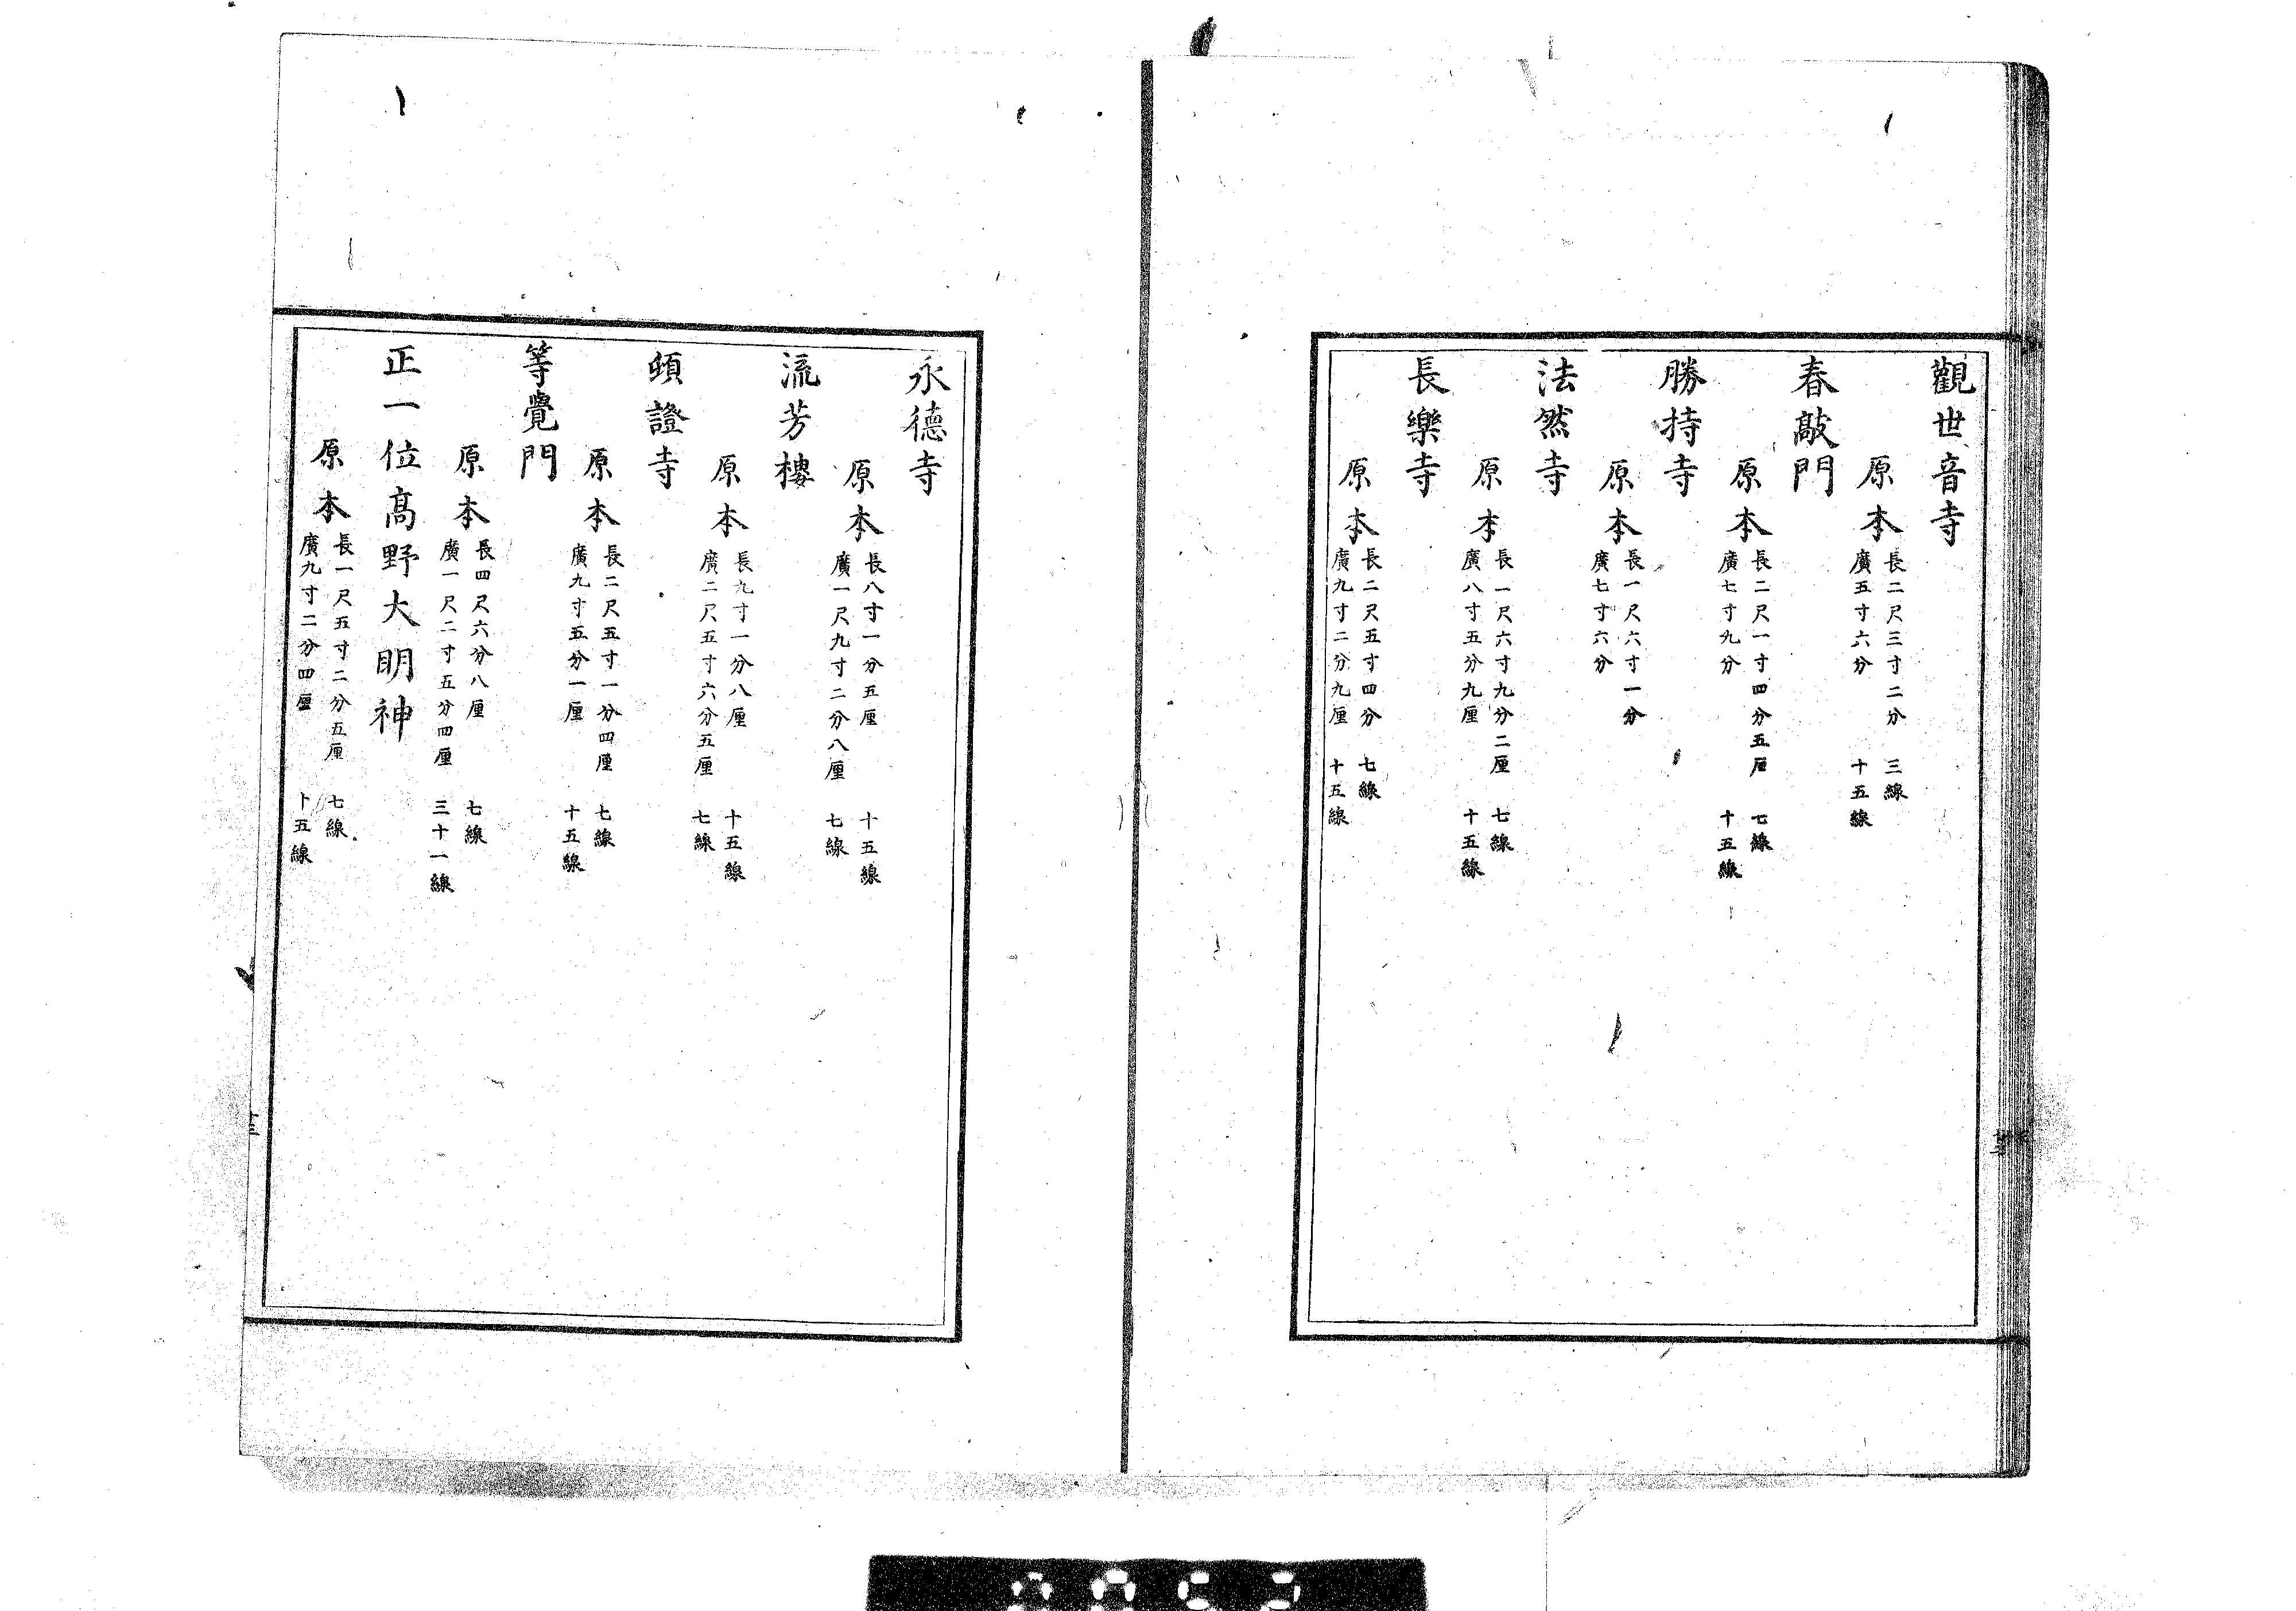 觀世音寺
原本
長二尺三寸二分　三線
廣五寸六分　十五線
春敲門
原本
長二尺一寸四分五厘　七線
廣七寸九分　十五線
勝持寺
原本
長一尺六寸一分
廣七寸六分
法然寺
原本
長一尺六寸九分二厘　七線
廣八寸五分九厘　十五線
長樂寺
原本
長二尺五寸四分　七線
廣九寸二分九厘　十五線
永德寺
原本
長八寸一分五厘　十五線
廣一尺九寸二分八厘　七線
流芳樓
原本
長九寸一分八厘　十五線
廣二尺五寸六分五厘　七線
頓證寺
原本
長二尺五寸一分四厘　七線
廣九寸五分一厘　十五線
等覺門
原本
長四尺六分八厘　七線
廣一尺二寸五分四厘　三十一線
正一位髙野大明神
原本
長一尺五寸二分五厘　七線
廣九寸二分四厘　十五線